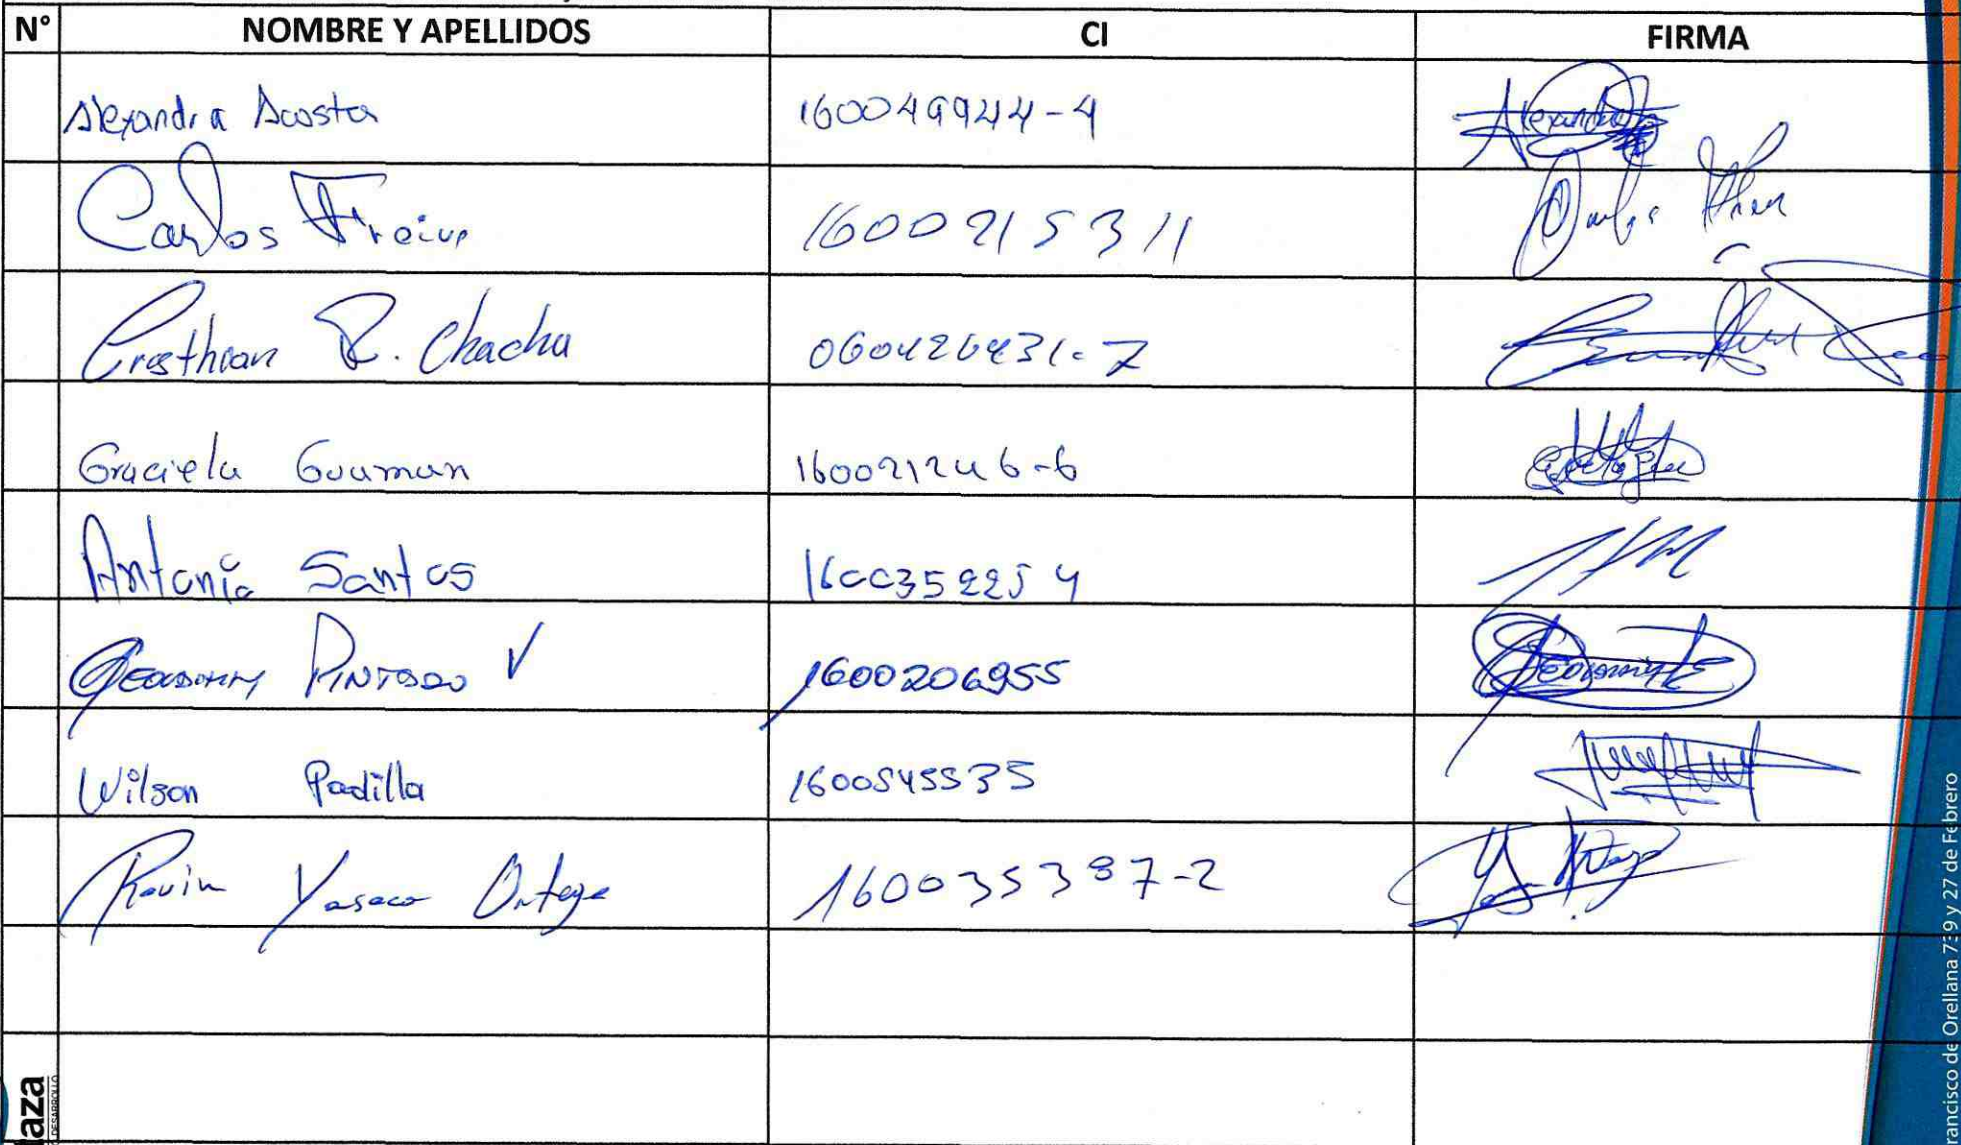 N° NOMBRE Y APELLIDOS CI FIRMA
Alexandra Acosta 160049944-4
Carlos Freire 1600215311
Cristhian R. Chacha 060426431-7
Graciela Guaman 160021246-6
Antonia Santos 1600352254
Geovanny Pintado V 1600206955
Wilson Padilla 1600545535
Kevin Ortega 160035387-2
aza
DESARROLLO
rancisco de Orellana 739 y 27 de Febrero